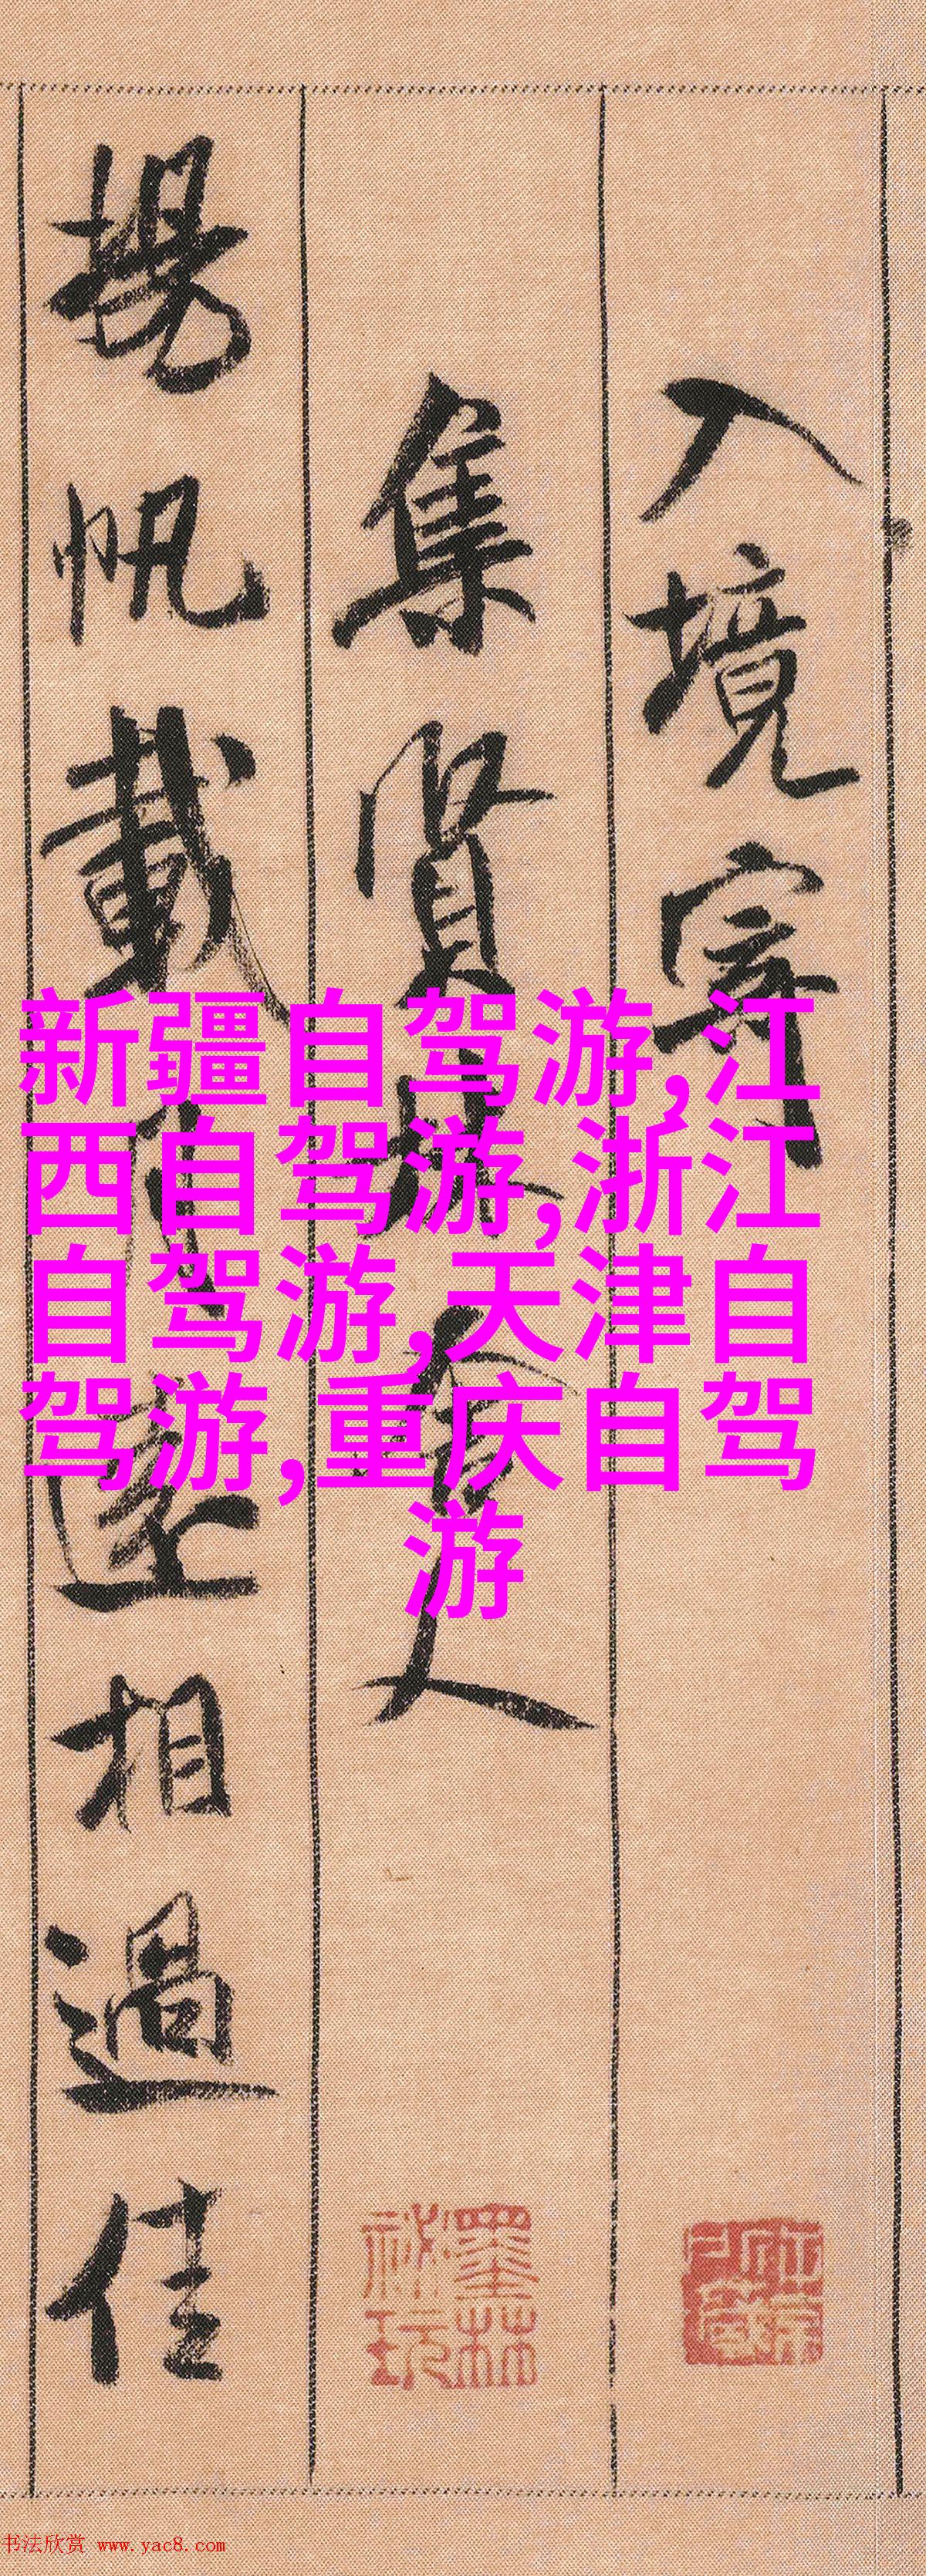 入境寄
集賢林舍人
揚帆載月遠相過佳
新疆自驾游,江
西自驾游,浙江
自驾游,天津自
驾游,重庆自驾
游
墨林
祕玩
书法欣赏 www.yac8.com